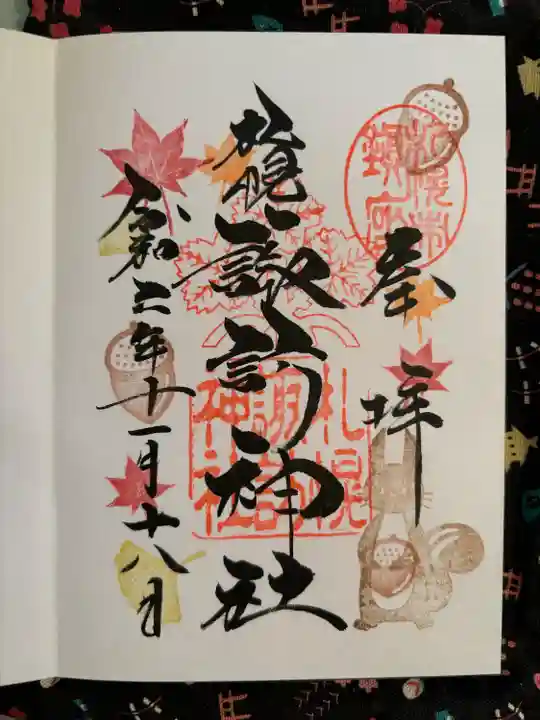 奉拝
札幌諏訪神社
令和二年十一月十八日
札幌諏訪神社